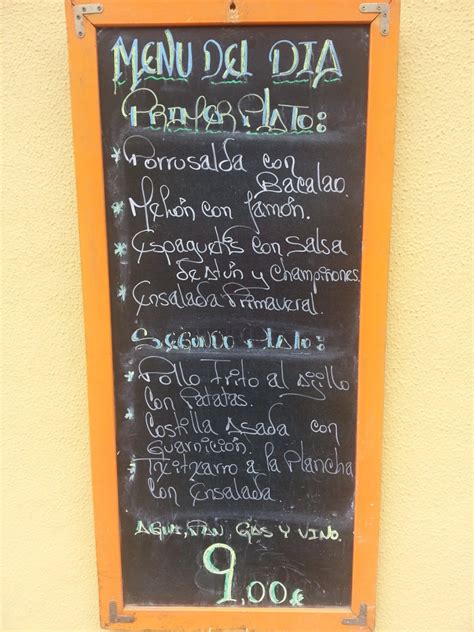 MENU DEL DIA
PRIMER PLATO:
* Porrusalda con
Bacalao.
* Melón con Jamón.
* Espaguetis con Salsa
de Atún y Champiñones.
* Ensalada Primaveral.
SEGUNDO PLATO:
* Pollo Frito al Ajillo
con Patatas.
* Costilla Asada con
Guarnición.
* Txitxarro a la Plancha
con Ensalada.
AGUA, PAN, GAS Y VINO.
9,00€